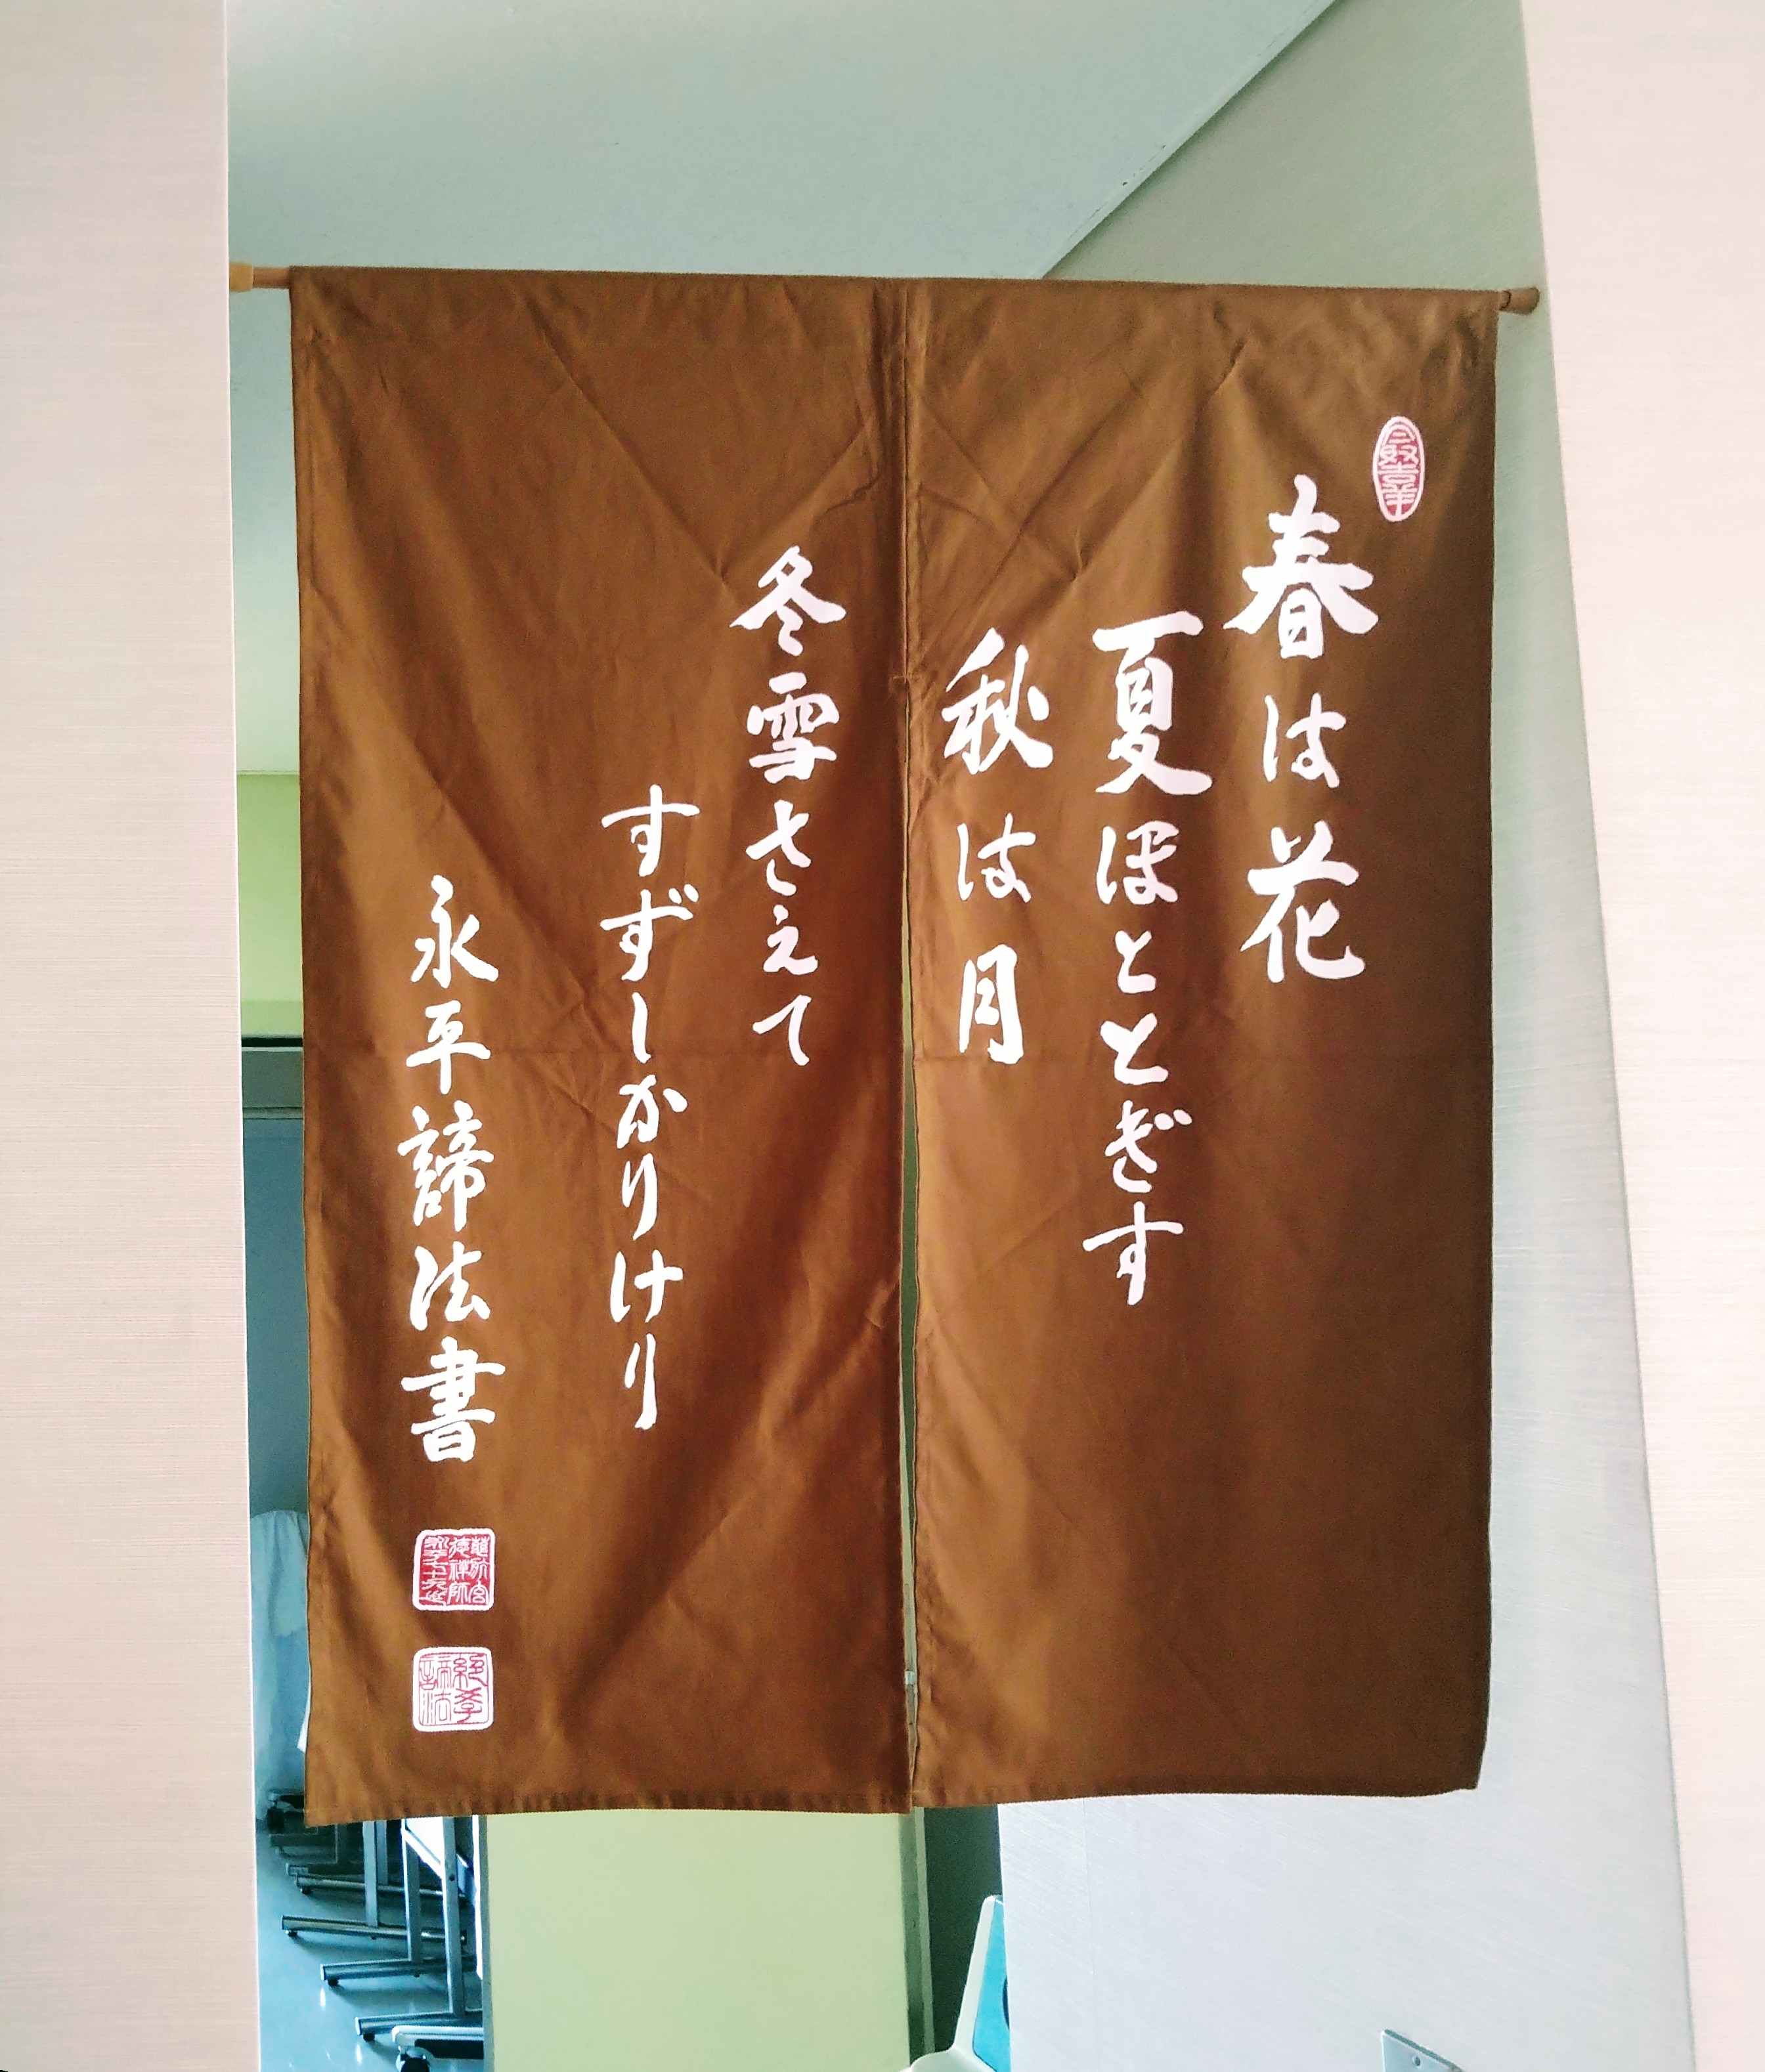 春は花
夏ほととぎす
秋は月
冬雪さえて
すずしかりけり
永平諦法書